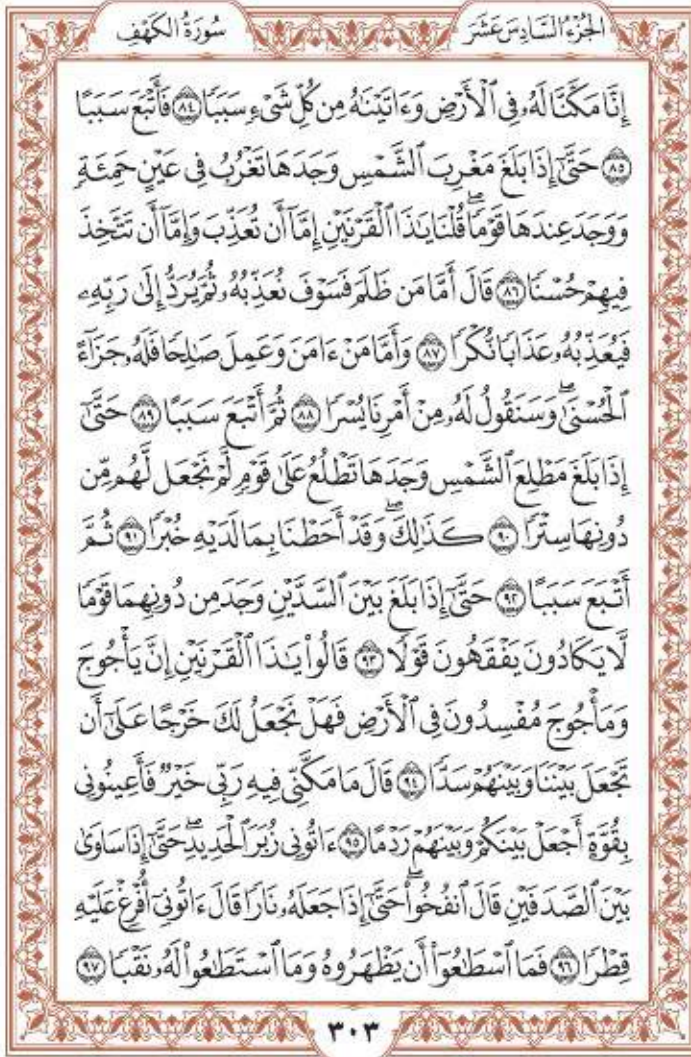 الجُزْءُ السَّادِسَ عَشَرَ
سُورَةُ الكَهْفِ
إِنَّا مَكَّنَّا لَهُۥ فِي ٱلۡأَرۡضِ وَءَاتَيۡنَٰهُ مِن كُلِّ شَيۡءٖ سَبَبٗا ٨٤ فَأَتۡبَعَ سَبَبًا
٨٥ حَتَّىٰٓ إِذَا بَلَغَ مَغۡرِبَ ٱلشَّمۡسِ وَجَدَهَا تَغۡرُبُ فِي عَيۡنٍ حَمِئَةٖ
وَوَجَدَ عِندَهَا قَوۡمٗاۖ قُلۡنَا يَٰذَا ٱلۡقَرۡنَيۡنِ إِمَّآ أَن تُعَذِّبَ وَإِمَّآ أَن تَتَّخِذَ
فِيهِمۡ حُسۡنٗا ٨٦ قَالَ أَمَّا مَن ظَلَمَ فَسَوۡفَ نُعَذِّبُهُۥ ثُمَّ يُرَدُّ إِلَىٰ رَبِّهِۦ
فَيُعَذِّبُهُۥ عَذَابٗا نُّكۡرٗا ٨٧ وَأَمَّا مَنۡ ءَامَنَ وَعَمِلَ صَٰلِحٗا فَلَهُۥ جَزَآءً
ٱلۡحُسۡنَىٰۖ وَسَنَقُولُ لَهُۥ مِنۡ أَمۡرِنَا يُسۡرٗا ٨٨ ثُمَّ أَتۡبَعَ سَبَبًا ٨٩ حَتَّىٰٓ
إِذَا بَلَغَ مَطۡلِعَ ٱلشَّمۡسِ وَجَدَهَا تَطۡلُعُ عَلَىٰ قَوۡمٖ لَّمۡ نَجۡعَل لَّهُم مِّن
دُونِهَا سِتۡرٗا ٩٠ كَذَٰلِكَۖ وَقَدۡ أَحَطۡنَا بِمَا لَدَيۡهِ خُبۡرٗا ٩١ ثُمَّ
أَتۡبَعَ سَبَبًا ٩٢ حَتَّىٰٓ إِذَا بَلَغَ بَيۡنَ ٱلسَّدَّيۡنِ وَجَدَ مِن دُونِهِمَا قَوۡمٗا
لَّا يَكَادُونَ يَفۡقَهُونَ قَوۡلٗا ٩٣ قَالُواْ يَٰذَا ٱلۡقَرۡنَيۡنِ إِنَّ يَأۡجُوجَ
وَمَأۡجُوجَ مُفۡسِدُونَ فِي ٱلۡأَرۡضِ فَهَلۡ نَجۡعَلُ لَكَ خَرۡجًا عَلَىٰٓ أَن
تَجۡعَلَ بَيۡنَنَا وَبَيۡنَهُمۡ سَدّٗا ٩٤ قَالَ مَا مَكَّنِّي فِيهِ رَبِّي خَيۡرٞ فَأَعِينُونِي
بِقُوَّةٍ أَجۡعَلۡ بَيۡنَكُمۡ وَبَيۡنَهُمۡ رَدۡمًا ٩٥ ءَاتُونِي زُبَرَ ٱلۡحَدِيدِۖ حَتَّىٰٓ إِذَا سَاوَىٰ
بَيۡنَ ٱلصَّدَفَيۡنِ قَالَ ٱنفُخُواْۖ حَتَّىٰٓ إِذَا جَعَلَهُۥ نَارٗا قَالَ ءَاتُونِيٓ أُفۡرِغۡ عَلَيۡهِ
قِطۡرٗا ٩٦ فَمَا ٱسۡطَٰعُوٓاْ أَن يَظۡهَرُوهُ وَمَا ٱسۡتَطَٰعُواْ لَهُۥ نَقۡبٗا ٩٧
٣٠٣